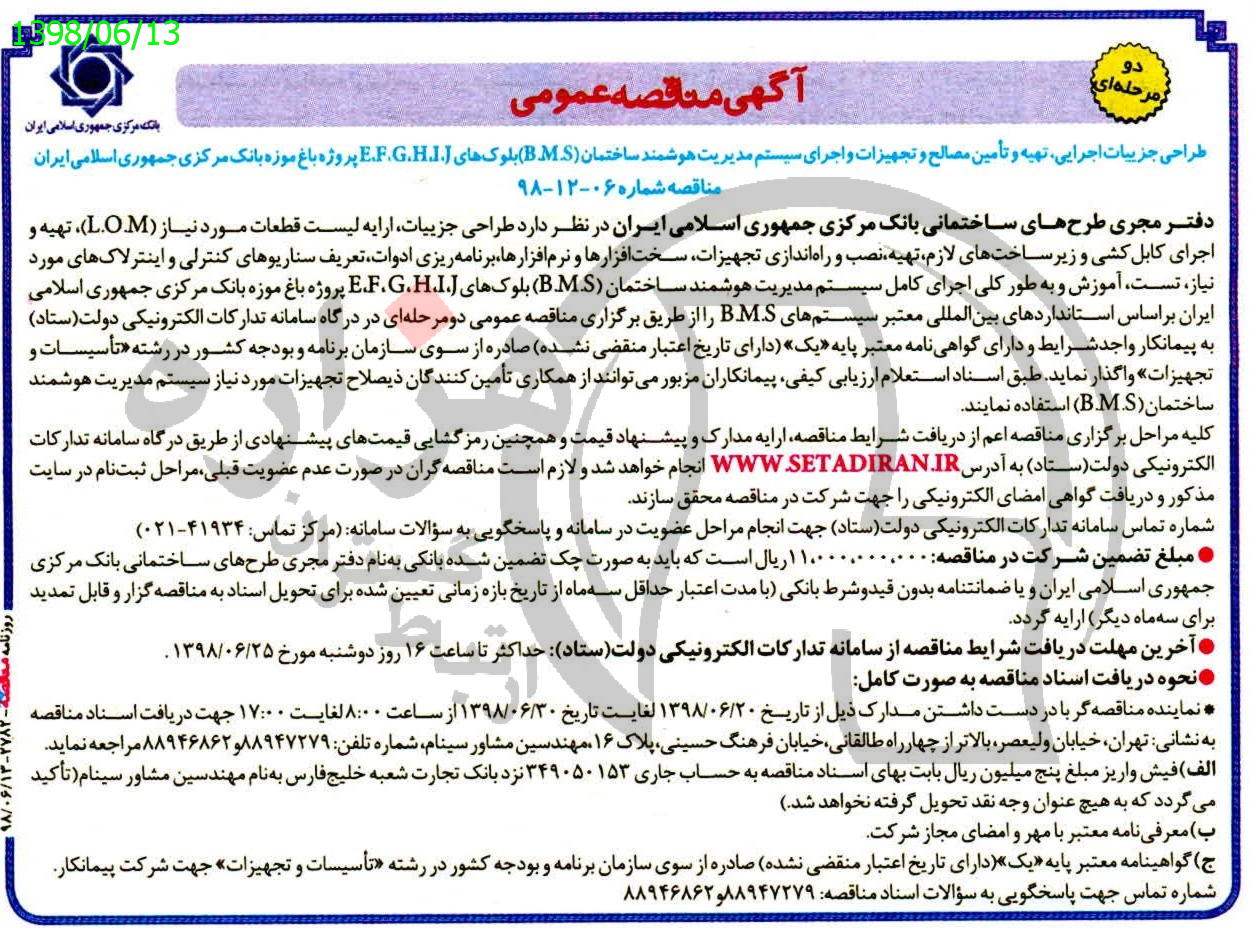 1398/06/13
بانک مرکزی جمهوری اسلامی ایران
دو
مرحله‌ای
آگهی مناقصه عمومی
طراحی جزییات اجرایی، تهیه و تأمین مصالح و تجهیزات و اجرای سیستم مدیریت هوشمند ساختمان (B.M.S) بلوک‌های E،F،G،H،I،J پروژه باغ موزه بانک مرکزی جمهوری اسلامی ایران
مناقصه شماره ۰۶-۱۲-۹۸
دفتر مجری طرح‌های ساختمانی بانک مرکزی جمهوری اسلامی ایران در نظر دارد طراحی جزییات، ارایه لیست قطعات مورد نیاز (L.O.M)، تهیه و
اجرای کابل‌کشی و زیرساخت‌های لازم، تهیه،نصب و راه‌اندازی تجهیزات، سخت‌افزارها و نرم‌افزارها،برنامه‌ریزی ادوات،تعریف سناریوهای کنترلی و اینترلاک‌های مورد
نیاز، تست، آموزش و به طور کلی اجرای کامل سیستم مدیریت هوشمند ساختمان (B.M.S) بلوک‌های E،F،G،H،I،J پروژه باغ موزه بانک مرکزی جمهوری اسلامی
ایران براساس استانداردهای بین‌المللی معتبر سیستم‌های B.M.S را از طریق برگزاری مناقصه عمومی دومرحله‌ای در درگاه سامانه تدارکات الکترونیکی دولت(ستاد)
به پیمانکار واجدشرایط و دارای گواهی‌نامه معتبر پایه«یک»(دارای تاریخ اعتبار منقضی نشده) صادره از سوی سازمان برنامه و بودجه کشور در رشته «تأسیسات و
تجهیزات» واگذار نماید. طبق اسناد استعلام ارزیابی کیفی، پیمانکاران مزبور می‌توانند از همکاری تأمین کنندگان ذیصلاح تجهیزات مورد نیاز سیستم مدیریت هوشمند
ساختمان(B.M.S) استفاده نمایند.
کلیه مراحل برگزاری مناقصه اعم از دریافت شرایط مناقصه، ارایه مدارک و پیشنهاد قیمت و همچنین رمزگشایی قیمت‌های پیشنهادی از طریق درگاه سامانه تدارکات
الکترونیکی دولت(ستاد) به آدرس WWW.SETADIRAN.IR انجام خواهد شد و لازم است مناقصه‌گران در صورت عدم عضویت قبلی،مراحل ثبت‌نام در سایت
مذکور و دریافت گواهی امضای الکترونیکی را جهت شرکت در مناقصه محقق سازند.
شماره تماس سامانه تدارکات الکترونیکی دولت(ستاد) جهت انجام مراحل عضویت در سامانه و پاسخگویی به سؤالات سامانه: (مرکز تماس: ۴۱۹۳۴-۰۲۱)
● مبلغ تضمین شرکت در مناقصه: ۱۱،۰۰۰،۰۰۰،۰۰۰ ریال است که باید به صورت چک تضمین شده بانکی به‌نام دفتر مجری طرح‌های ساختمانی بانک مرکزی
جمهوری اسلامی ایران و یا ضمانتنامه بدون قیدوشرط بانکی (با مدت اعتبار حداقل سه‌ماه از تاریخ بازه زمانی تعیین شده برای تحویل اسناد به مناقصه‌گزار و قابل تمدید
برای سه‌ماه دیگر) ارایه گردد.
● آخرین مهلت دریافت شرایط مناقصه از سامانه تدارکات الکترونیکی دولت(ستاد): حداکثر تا ساعت ۱۶ روز دوشنبه مورخ ۱۳۹۸/۰۶/۲۵ .
● نحوه دریافت اسناد مناقصه به صورت کامل:
* نماینده مناقصه‌گر با در دست داشتن مدارک ذیل از تاریخ ۱۳۹۸/۰۶/۲۰ لغایت تاریخ ۱۳۹۸/۰۶/۳۰ از ساعت ۸:۰۰ لغایت ۱۷:۰۰ جهت دریافت اسناد مناقصه
به نشانی: تهران، خیابان ولیعصر، بالاتر از چهارراه طالقانی، خیابان فرهنگ حسینی، پلاک ۱۶،مهندسین مشاور سینام، شماره تلفن: ۸۸۹۴۷۲۷۹ و ۸۸۹۴۶۸۶۲ مراجعه نماید.
الف) فیش واریز مبلغ پنج میلیون ریال بابت بهای اسناد مناقصه به حساب جاری ۳۴۹۰۵۰۱۵۳ نزد بانک تجارت شعبه خلیج‌فارس به‌نام مهندسین مشاور سینام(تأکید
می‌گردد که به هیچ عنوان وجه نقد تحویل گرفته نخواهد شد.)
ب) معرفی‌نامه معتبر با مهر و امضای مجاز شرکت.
ج) گواهینامه معتبر پایه«یک»(دارای تاریخ اعتبار منقضی نشده) صادره از سوی سازمان برنامه و بودجه کشور در رشته «تأسیسات و تجهیزات» جهت شرکت پیمانکار.
شماره تماس جهت پاسخگویی به سؤالات اسناد مناقصه: ۸۸۹۴۷۲۷۹ و ۸۸۹۴۶۸۶۲
روزنامه مناقصه - ۳۷۸۲ - ۹۸/۰۶/۱۳
هزاره